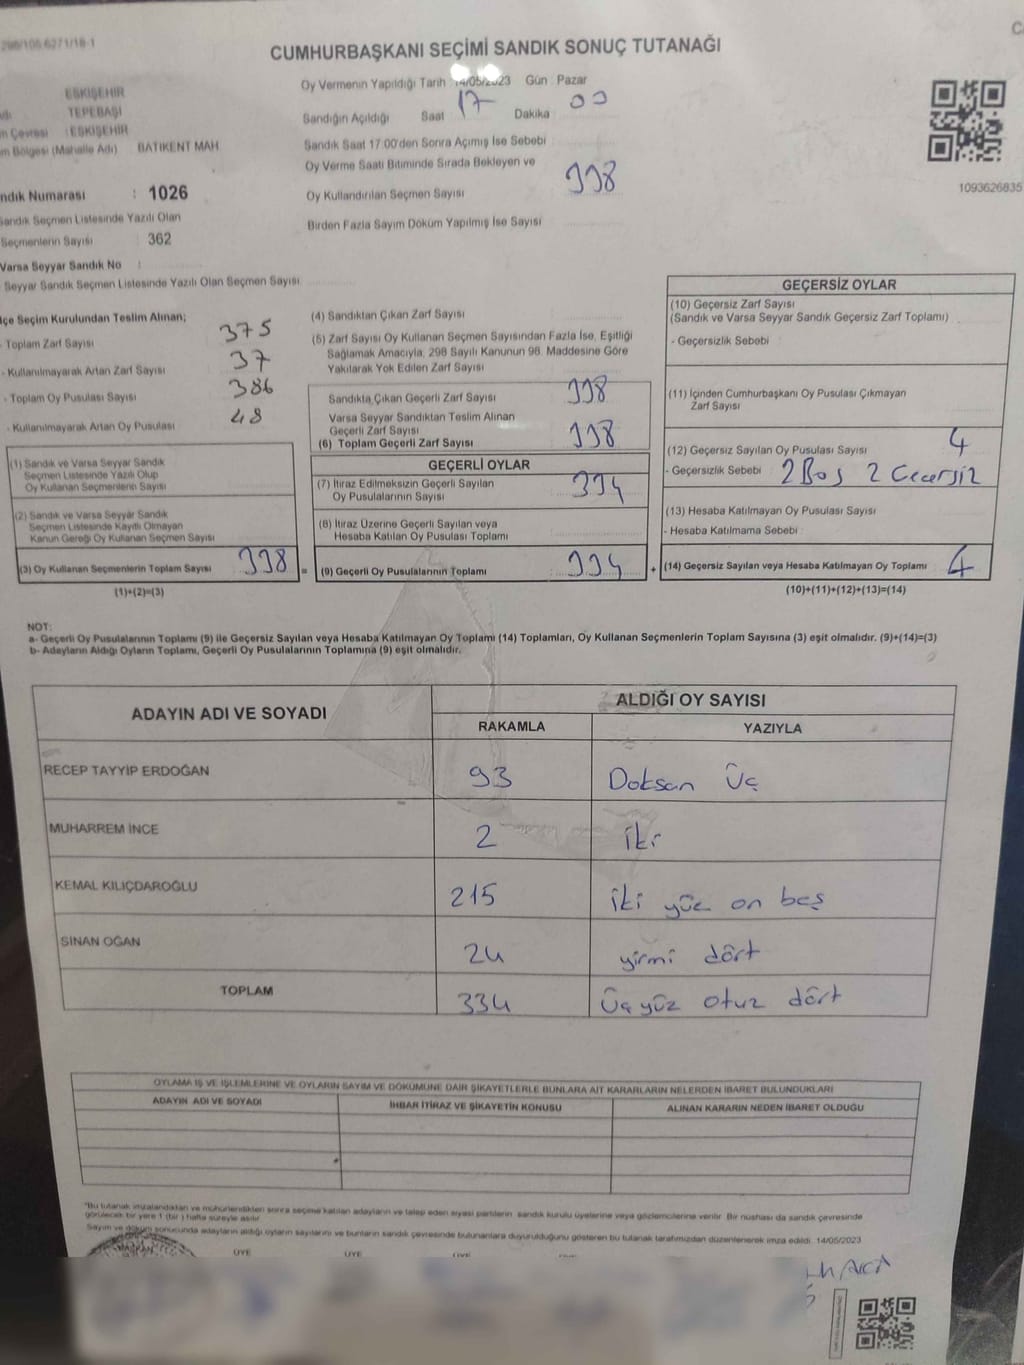 298/105.6271/18-1
CUMHURBAŞKANI SEÇİMİ SANDIK SONUÇ TUTANAĞI
ESKİŞEHİR
TEPEBAŞI
m Çevresi : ESKİŞEHİR
m Bölgesi (Mahalle Adı) BATIKENT MAH.
ndık Numarası : 1026
Sandık Seçmen Listesinde Yazılı Olan
Seçmenlerin Sayısı 362
Varsa Seyyar Sandık No :
Seyyar Sandık Seçmen Listesinde Yazılı Olan Seçmen Sayısı
Oy Vermenin Yapıldığı Tarih 14/05/2023 Gün : Pazar
Sandığın Açıldığı Saat 17 Dakika 00
Sandık Saat 17.00'den Sonra Açılmış İse Sebebi :
Oy Verme Saati Bitiminde Sırada Bekleyen ve
Oy Kullandırılan Seçmen Sayısı 338
Birden Fazla Sayım Döküm Yapılmış İse Sayısı
1093626835
lçe Seçim Kurulundan Teslim Alınan;
- Toplam Zarf Sayısı 375
- Kullanılmayarak Artan Zarf Sayısı 37
- Toplam Oy Pusulası Sayısı 386
- Kullanılmayarak Artan Oy Pusulası 48
(1) Sandık ve Varsa Seyyar Sandık
Seçmen Listesinde Yazılı Olup
Oy Kullanan Seçmenlerin Sayısı
(2) Sandık ve Varsa Seyyar Sandık
Seçmen Listesinde Kayıtlı Olmayan
Kanun Gereği Oy Kullanan Seçmen Sayısı
(3) Oy Kullanan Seçmenlerin Toplam Sayısı 338 =
(1)+(2)=(3)
(4) Sandıktan Çıkan Zarf Sayısı
(5) Zarf Sayısı Oy Kullanan Seçmen Sayısından Fazla İse, Eşitliği
Sağlamak Amacıyla, 298 Sayılı Kanunun 98. Maddesine Göre
Yakılarak Yok Edilen Zarf Sayısı
Sandıkta Çıkan Geçerli Zarf Sayısı 338
Varsa Seyyar Sandıktan Teslim Alınan
Geçerli Zarf Sayısı
(6) Toplam Geçerli Zarf Sayısı 338
GEÇERLİ OYLAR
(7) İtiraz Edilmeksizin Geçerli Sayılan
Oy Pusulalarının Sayısı 334
(8) İtiraz Üzerine Geçerli Sayılan veya
Hesaba Katılan Oy Pusulası Toplamı
(9) Geçerli Oy Pusulalarının Toplamı 334 +
GEÇERSİZ OYLAR
(10) Geçersiz Zarf Sayısı
(Sandık ve Varsa Seyyar Sandık Geçersiz Zarf Toplamı)
- Geçersizlik Sebebi :
(11) İçinden Cumhurbaşkanı Oy Pusulası Çıkmayan
Zarf Sayısı
(12) Geçersiz Sayılan Oy Pusulası Sayısı 4
- Geçersizlik Sebebi : 2 Boş 2 Geçersiz
(13) Hesaba Katılmayan Oy Pusulası Sayısı
- Hesaba Katılmama Sebebi :
(14) Geçersiz Sayılan veya Hesaba Katılmayan Oy Toplamı 4
(10)+(11)+(12)+(13)=(14)
NOT:
a- Geçerli Oy Pusulalarının Toplamı (9) ile Geçersiz Sayılan veya Hesaba Katılmayan Oy Toplamı (14) Toplamları, Oy Kullanan Seçmenlerin Toplam Sayısına (3) eşit olmalıdır. (9)+(14)=(3)
b- Adayların Aldığı Oyların Toplamı, Geçerli Oy Pusulalarının Toplamına (9) eşit olmalıdır.
ADAYIN ADI VE SOYADI ALDIĞI OY SAYISI
RAKAMLA YAZIYLA
RECEP TAYYİP ERDOĞAN 93 Doksan üç
MUHARREM İNCE 2 iki
KEMAL KILIÇDAROĞLU 215 iki yüz on beş
SİNAN OĞAN 24 yirmi dört
TOPLAM 334 Üç yüz otuz dört
OYLAMA İŞ VE İŞLEMLERİNE VE OYLARIN SAYIM VE DÖKÜMÜNE DAİR ŞİKAYETLERLE BUNLARA AİT KARARLARIN NELERDEN İBARET BULUNDUKLARI
ADAYIN ADI VE SOYADI İHBAR İTİRAZ VE ŞİKAYETİN KONUSU ALINAN KARARIN NEDEN İBARET OLDUĞU
*Bu tutanak imzalandıktan ve mühürlendikten sonra seçime katılan adayların ve talep eden siyasi partilerin sandık kurulu üyelerine veya gözlemcilerine verilir. Bir nüshası da sandık çevresinde
görülecek bir yere 1 (bir) hafta süreyle asılır.
Sayım ve döküm sonucunda adayların aldığı oyların sayılarını ve bunların sandık çevresinde bulunanlara duyurulduğunu gösteren bu tutanak tarafımızdan düzenlenerek imza edildi. 14/05/2023
ÜYE ÜYE ÜYE